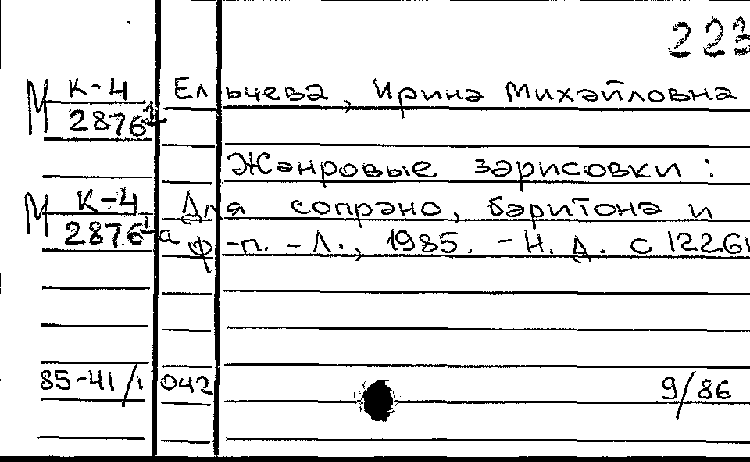 223
М К-4 Ельчева, Ирина Михайловна
2876
Жанровые зарисовки:
М К-4 Для сопрано, баритона и
2876 ф-п. - Л., 1985. - Н. д. с 1226
85-41/1 042 9/86